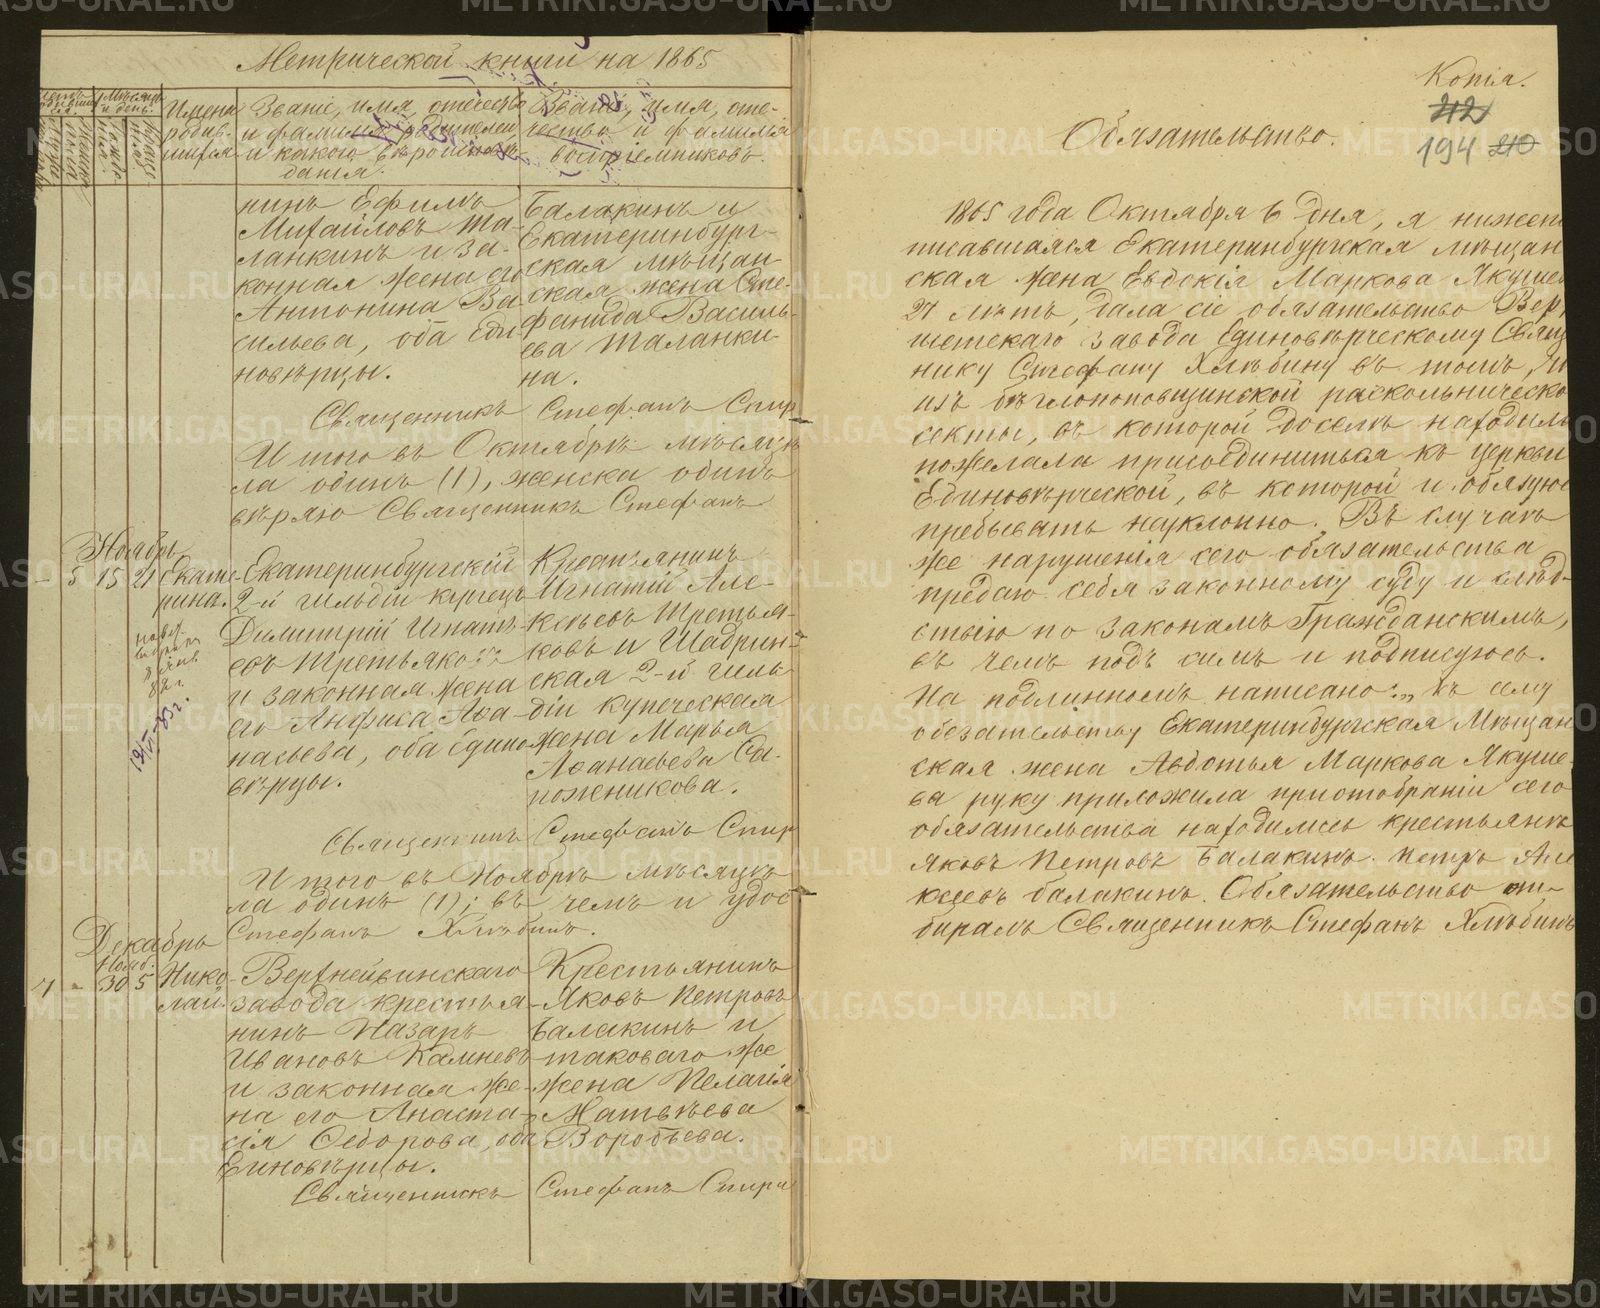 Метрической книги на 1865
Имена родив-шихся
Званіе, имя, отечество
и фамилія родителей,
и какого вѣроиспове-
данія.
Званіе, имя, оте-
чество и фамилія
воспріемниковъ.
нинъ Ефимъ
Михайловъ Та-
ланкинъ и за-
конная жена его
Антонина Ва-
сильева, оба Еди-
новѣрцы.
Балакинъ и
Екатеринбург-
ская мѣщан-
ская жена Сте-
фанида Василь-
ева Таланки-
на.
Священникъ Стефанъ Спир
И того въ Октябрѣ мѣсяцѣ
ла одинъ (1), женска одинъ
вѣряю Священникъ Стефанъ
Ноябрь
5 15 21 Екате-
рина.
Екатеринбургскій
2-й гильдіи купецъ
Димитрій Игнать-
евъ Третьяковъ
и законная жена
его Анфиса Аѳа-
насьева, оба Едино-
вѣрцы.
Крестьянинъ
Игнатій Але-
ксѣевъ Третья-
ковъ и Шадрин-
ская 2-й гиль-
діи купеческая
жена Марья
Аѳанасьева Са-
пожникова.
Священникъ Стефанъ Спир
И того въ Ноябрѣ мѣсяцѣ
ла одинъ (1); въ чемъ и удос
Стефанъ Хлѣбинъ.
Декабрь
Нояб.
4 - 30 5 Нико-
лай.
Верхнейвинскаго
завода крестья-
нинъ Назаръ
Ивановъ Камневъ
и законная же-
на его Анаста-
сія Ѳедорова, оба
Единовѣрцы.
Крестьянинъ
Яковъ Петровъ
Балакинъ и
таковаго же
жена Пелагія
Матвѣева
Воробьева.
Священникъ Стефанъ Спири
Копія.
212
194 210
Обязательство.
1865 года Октября 6 дня, я нижепо
писавшаяся Екатеринбургская мѣщан
ская жена Евдокія Маркова Якушев
27 лѣтъ, дала сіе обязательство Верх
исетскаго завода Единовѣрческому Свящ
нику Стефану Хлѣбину въ томъ, ч
изъ бѣглопоповщинской раскольническо
секты, въ которой доселѣ находил
пожелала присоединиться къ церкви
Единовѣрческой, въ которой и обязую
пребывать неуклонно. Въ случаѣ
же нарушенія сего обязательства
предаю себя законному суду и слѣд-
ствію по законамъ Гражданскимъ,
въ чемъ подъ симъ и подписуюсь.
На подлинномъ написано: „къ сему
обезательству Екатеринбургская Мѣщан
ская жена Авдотья Маркова Якуше-
ва руку приложила приотобраніи сего
обязательства находились крестьянѣ
Яковъ Петровъ Балакинъ. Петръ Але
ксѣевъ балакинъ. Обязательство от-
биралъ Священникъ Стефанъ Хлѣбинъ
METRIKI.GASO-URAL.RU